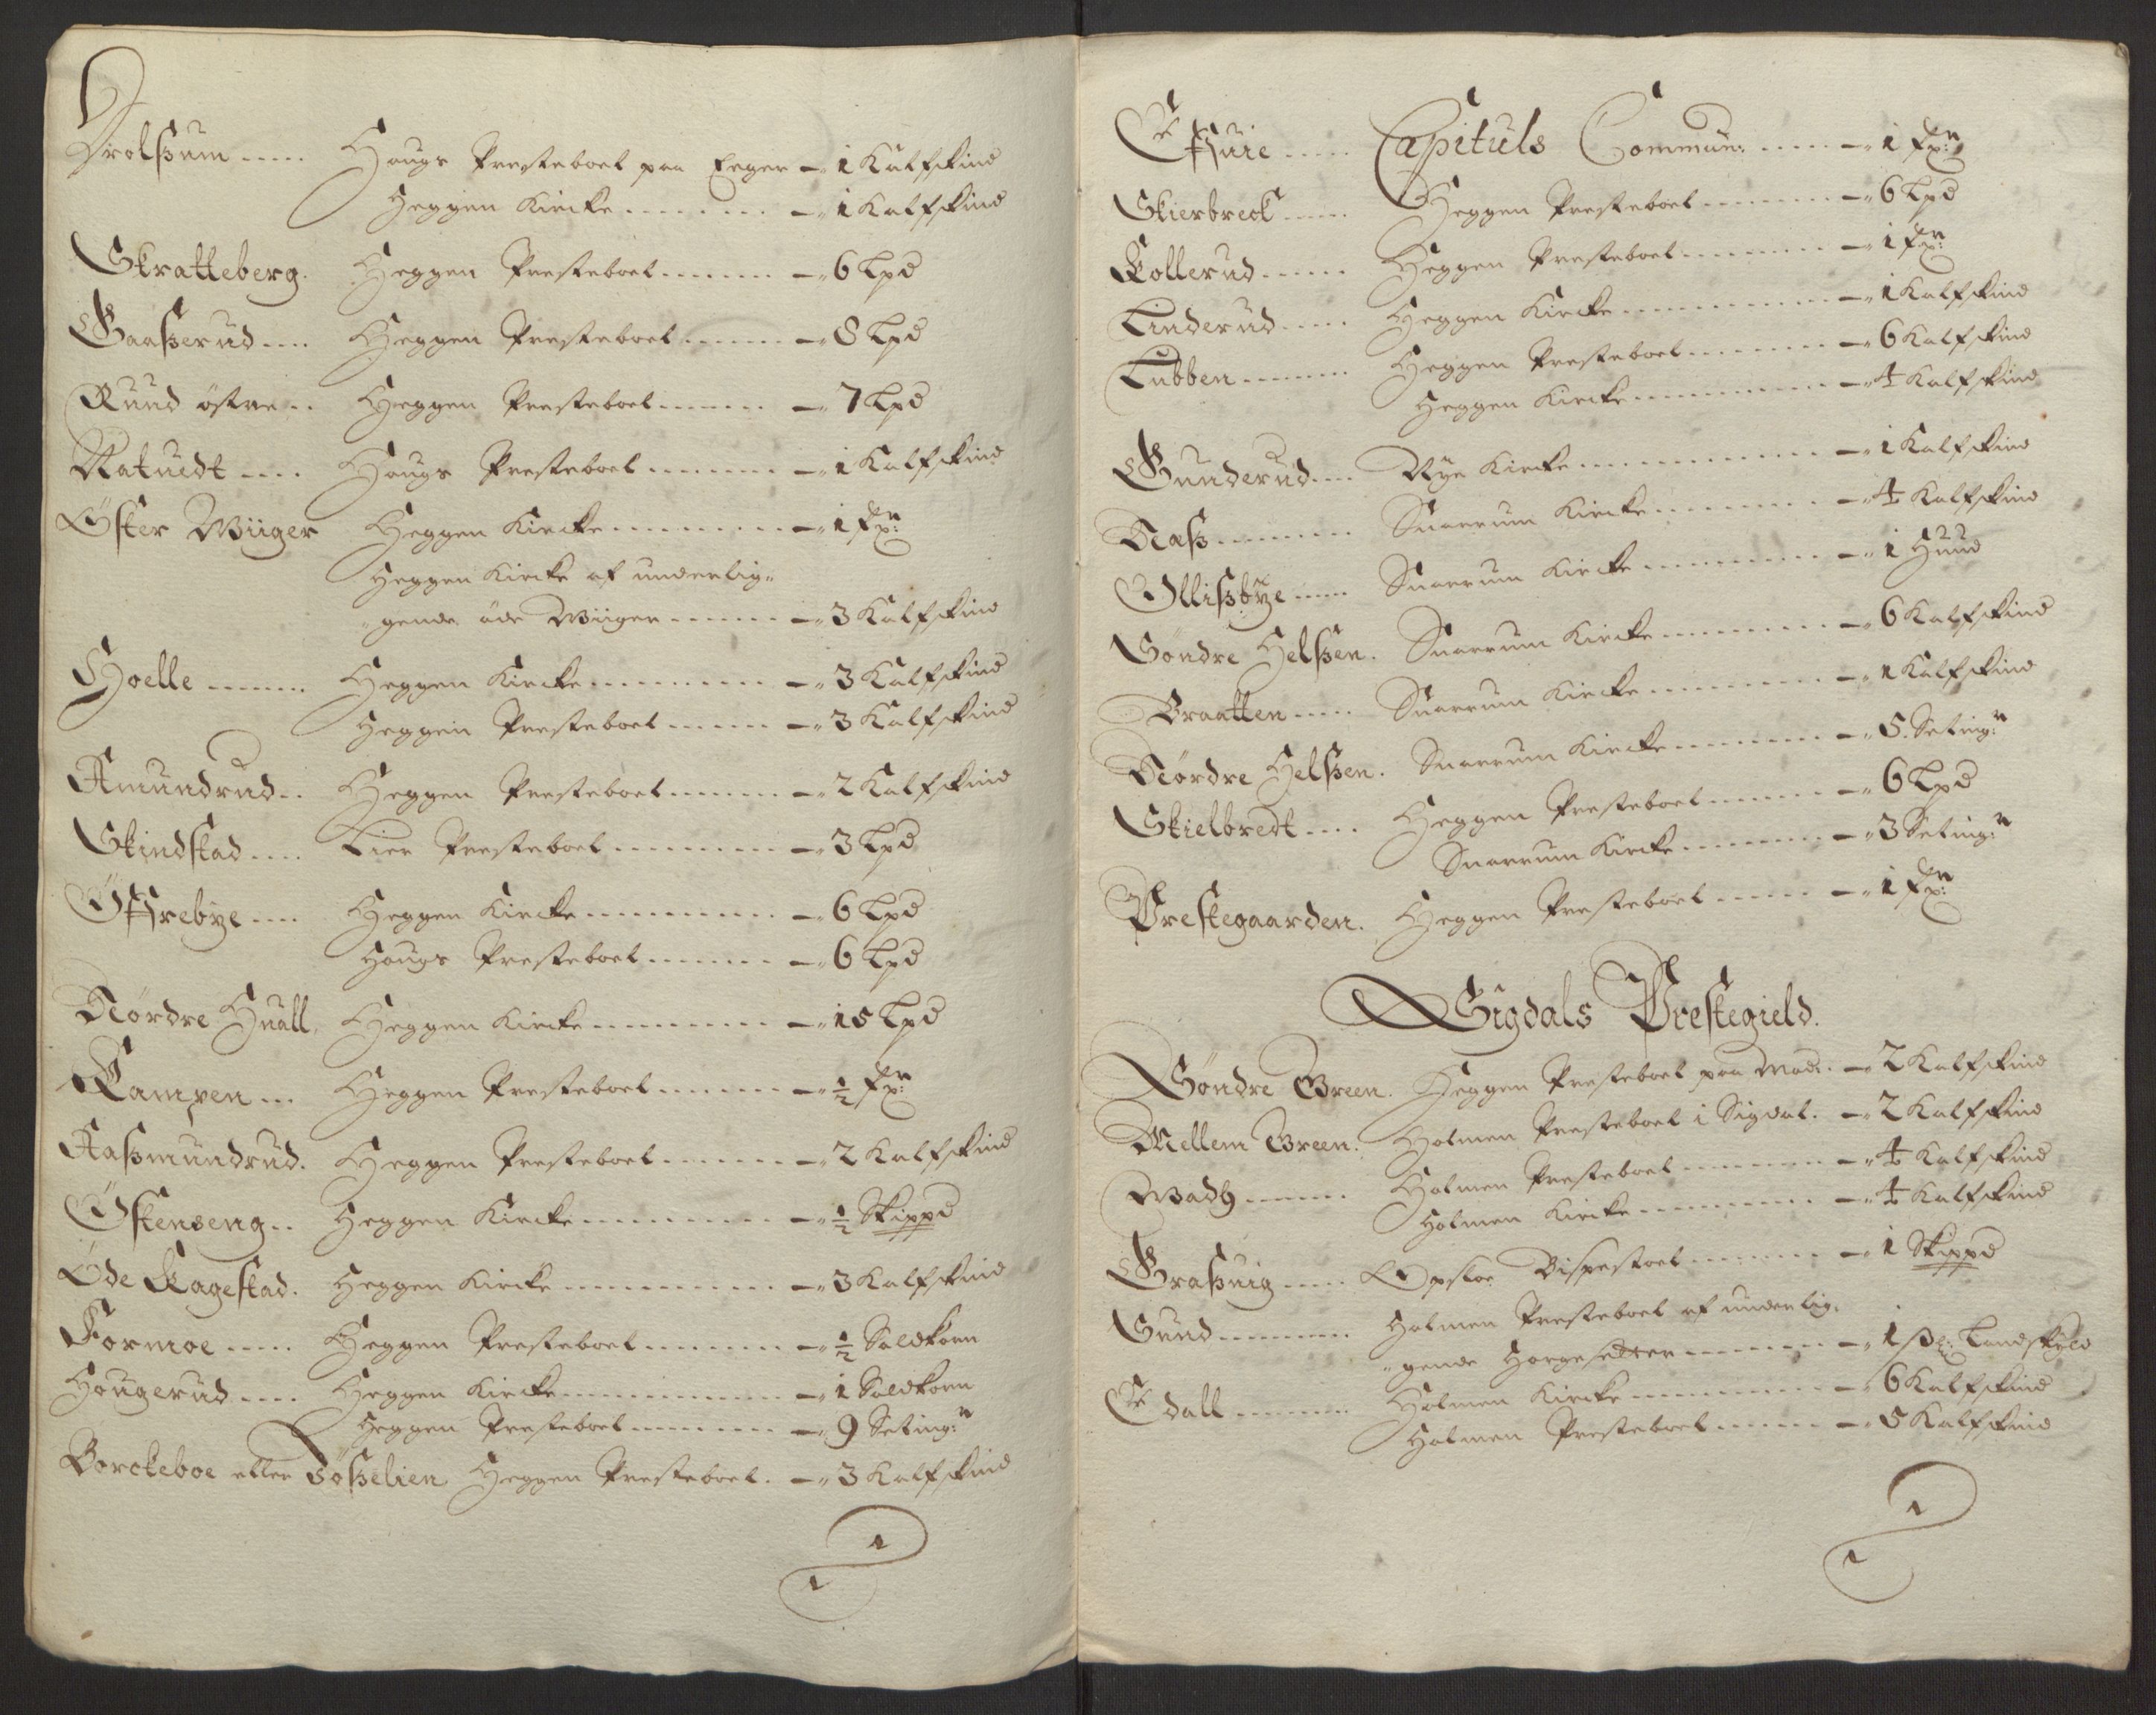 Drolßum ..... Hougs Presteboel paa Eeger – 1 Kalfskind
Heggen Kircke ........ – 1 Kalfskind
Skratteberg. Heggen Presteboel ....... – 6 Lpd
Gaaßerud .... Heggen Presteboel ....... – 8 Lpd
Ruud östre .. Heggen Presteboel ....... – 7 Lpd
Natuedt .... Hougs Presteboel ....... – 1 Kalfskind
Öster Wiiger Heggen Kircke ......... – 1 fr:
Heggen Kircke af underlig„
„gende öde Wiiger ...... – 3 Kalfskind
Hoelle ....... Heggen Kircke ......... – 3 Kalfskind
Heggen Presteboel ...... – 3 Kalfskind
Amundrud .. Heggen Presteboel ...... – 2 Kalfskind
Skindstad .... Lier Presteboel ........ – 3 Lpd
Öffrebye .... Heggen Kircke ......... – 6 Lpd
Hougs Presteboel ....... – 6 Lpd
Nördre Huall. Heggen Kircke ......... – 15 Lpd
Kampen ... Heggen Presteboel ....... – ½ fr:
Aaßmundrud. Heggen Presteboel ....... – 2 Kalfskind
Östenseng .. Heggen Kircke ......... – ½ Skippd
Öde Kagestad. Heggen Kircke ......... – 3 Kalfskind
Formoe ..... Heggen Presteboel ....... – ½ Soldkorn
Hougerud .... Heggen Kircke ......... – 1 Soldkorn
Heggen Presteboel ....... – 9 Seting:r
Borckeboe eller Lößelien Heggen Presteboel. – 3 Kalfskind
Effuie ..... Capituls Commun: ..... – 1 fr:
Skierbreck ..... Heggen Presteboel ....... – 6 Lpd
Kollerud ...... Heggen Presteboel ....... – 1 fr:
Linderud ..... Heggen Kircke ......... – 1 Kalfskind
Lubben ....... Heggen Presteboel ....... – 6 Kalfskind
Heggen Kircke ......... – 4 Kalfskind
Gunderud .... Nye Kircke ......... – 1 Kalfskind
Naß ........ Snarrum Kircke ....... – 4 Kalfskind
Ollißbye ..... Snarrum Kircke ....... – 1 Huud
Söndre Helßen. Snarrum Kircke ....... – 6 Kalfskind
Braatten ..... Snarrum Kircke ....... – 1 Kalfskind
Nördre Helßen. Snarrum Kircke ....... – 5 Seting:r
Skielbredt .... Heggen Presteboel ...... – 6 Lpd
Snarrum Kircke ....... – 3 Seting:r
Prestegaarden. Heggen Presteboel ..... – 1 fr:
Sigdals Prestegield.
Söndre Green. Heggen Presteboel paa Mod: – 2 Kalfskind
Mellem Green. Holmen Presteboel i Sigdal. – 2 Kalfskind
Madh ...... Holmen Presteboel ....... – 4 Kalfskind
Holmen Kircke ......... – 4 Kalfskind
Graßuig ..... Opsloe Bispestoel ...... – 1 Skippd
Sund ........ Holmen Presteboel af underlig:
„gende Horgesetter ....... – 1 ß Landskyld
Edall ....... Holmen Kircke ......... – 6 Kalfskind
Holmen Presteboel ...... – 5 Kalfskind